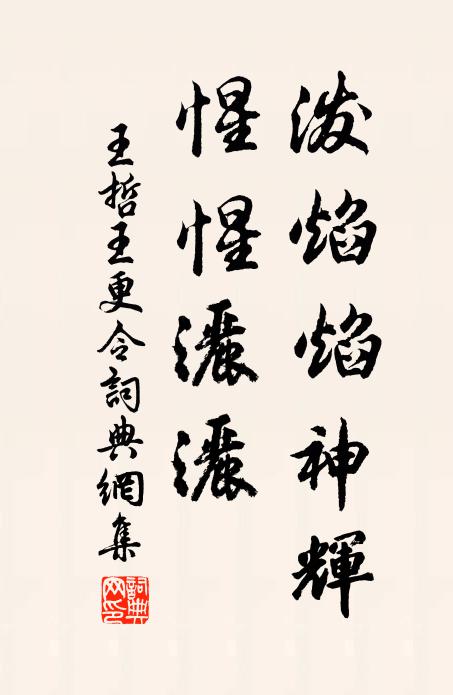 泼焰焰神輝
惺惺灑灑
王哲王更令詞典網集
詞典网印